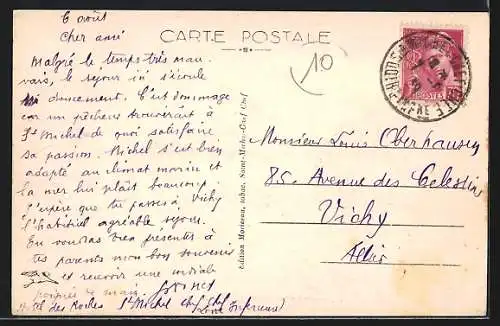 6 août
Cher ami
CARTE POSTALE
10
Malgré le temps très mau
vais, le séjour ici s'écoule
doucement. C'est dommage
car un pêcheur trouverait à
St Michel de quoi satisfaire
sa passion. Michel s'est bien
adapté au climat marin et
la mer lui plaît beaucoup.
J'espère que tu passes à Vichy
l'habituel agréable séjour.
tu voudras bien présenter à
tes parents mon bon souvenir
et recevoir une cordiale
poignée de main.
des Roches St Michel Chef Chef
Loire Inférieure
Edition Morisseau, tabac, Saint-Michel-Chef-Chef
POSTES
Monsieur Louis Oberhausen
85, Avenue des Celestins
Vichy
Allier